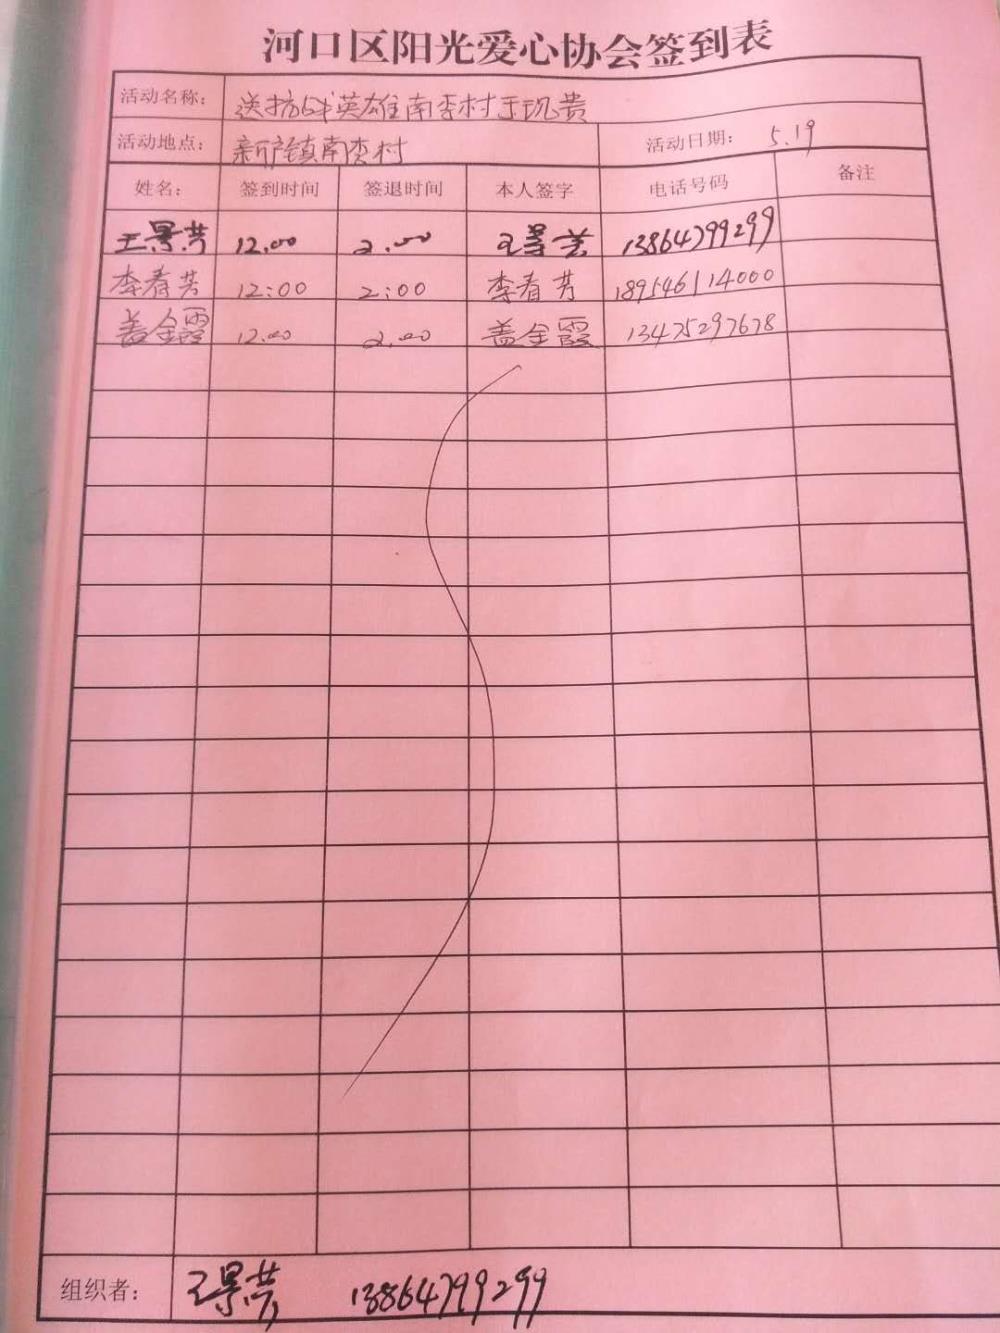 河口区阳光爱心协会签到表
活动名称: 送抗战英雄南李村王现贵
活动地点: 新户镇南李村 活动日期: 5.19
姓名: 签到时间 签退时间 本人签字 电话号码 备注
王景芳 12.00 2.00 王景芳 13864799299
李春芳 12:00 2:00 李春芳 189546114000
盖金霞 12.00 2.00 盖金霞 13475297678
组织者: 王景芳 13864799299